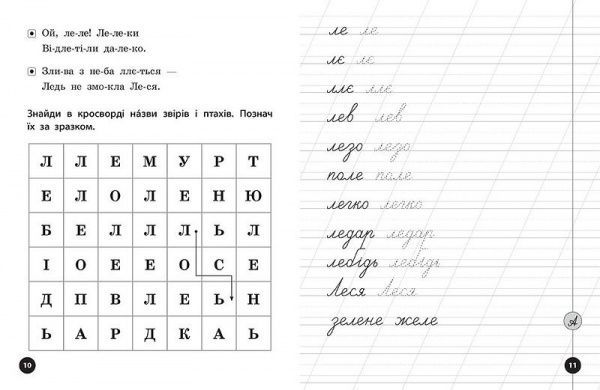 Ой, ле-ле! Ле-ле-ки
Ві-дле-ті-ли да-ле-ко.
Зли-ва з не-ба ллє-ться —
Ледь не змо-кла Ле-ся.
Знайди в кросворді на́зви звірів і птахів. Познач
їх за зразком.
Л Л Е М У Р Т
Е Л О Л Е Н Ю
Б Е Л Л Л Ь Л
І О Е Е О С Е
Д П В Л Е Ь Н
Ь А Р Д К А Ь
10
ле ле
лє лє
ллє ллє
лев лев
лезо лезо
поле поле
легко легко
ледар ледар
лебідь лебідь
Леся Леся
зелене желе
А
11